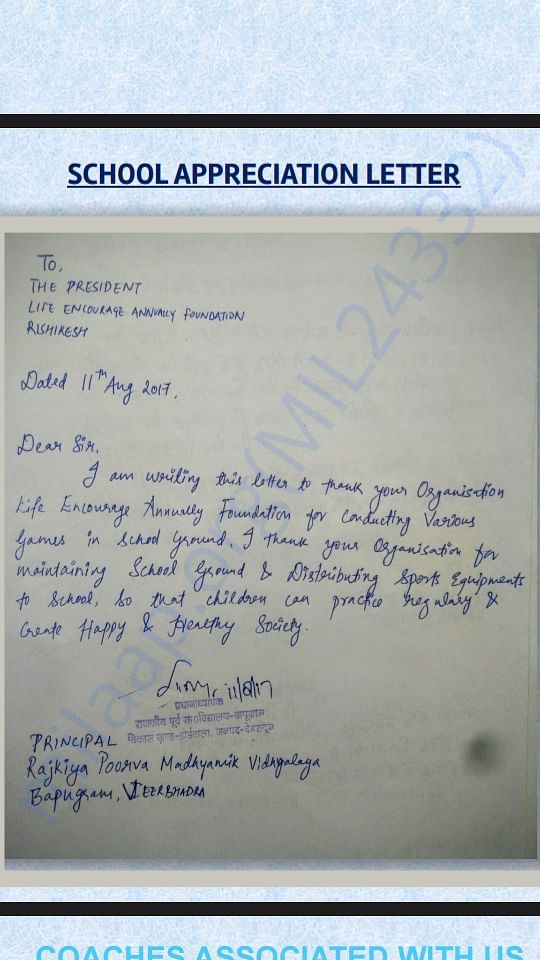 SCHOOL APPRECIATION LETTER
To,
THE PRESIDENT
LIFE ENCOURAGE ANNUALLY FOUNDATION
RISHIKESH
Dated 11th Aug 2017,
Dear Sir,
I am writing this letter to thank your Organisation
Life Encourage Annually Foundation for Conducting Various
Games in School Ground. I thank your Organisation for
maintaining School Ground & Distributing Sports Equipments
to School, So that children can practice regulary &
Create Happy & Healthy Society.
11/8/17
प्रधानाध्यापक
राजकीय पूर्व मा०विद्यालय-बापूग्राम
विकास खण्ड-डोईवाला, जनपद-देहरादून
PRINCIPAL
Rajkiya Poorva Madhyamik Vidhyalaya
Bapugram, VEERBHADRA
milaap.org(MIL24332)
COACHES ASSOCIATED WITH US